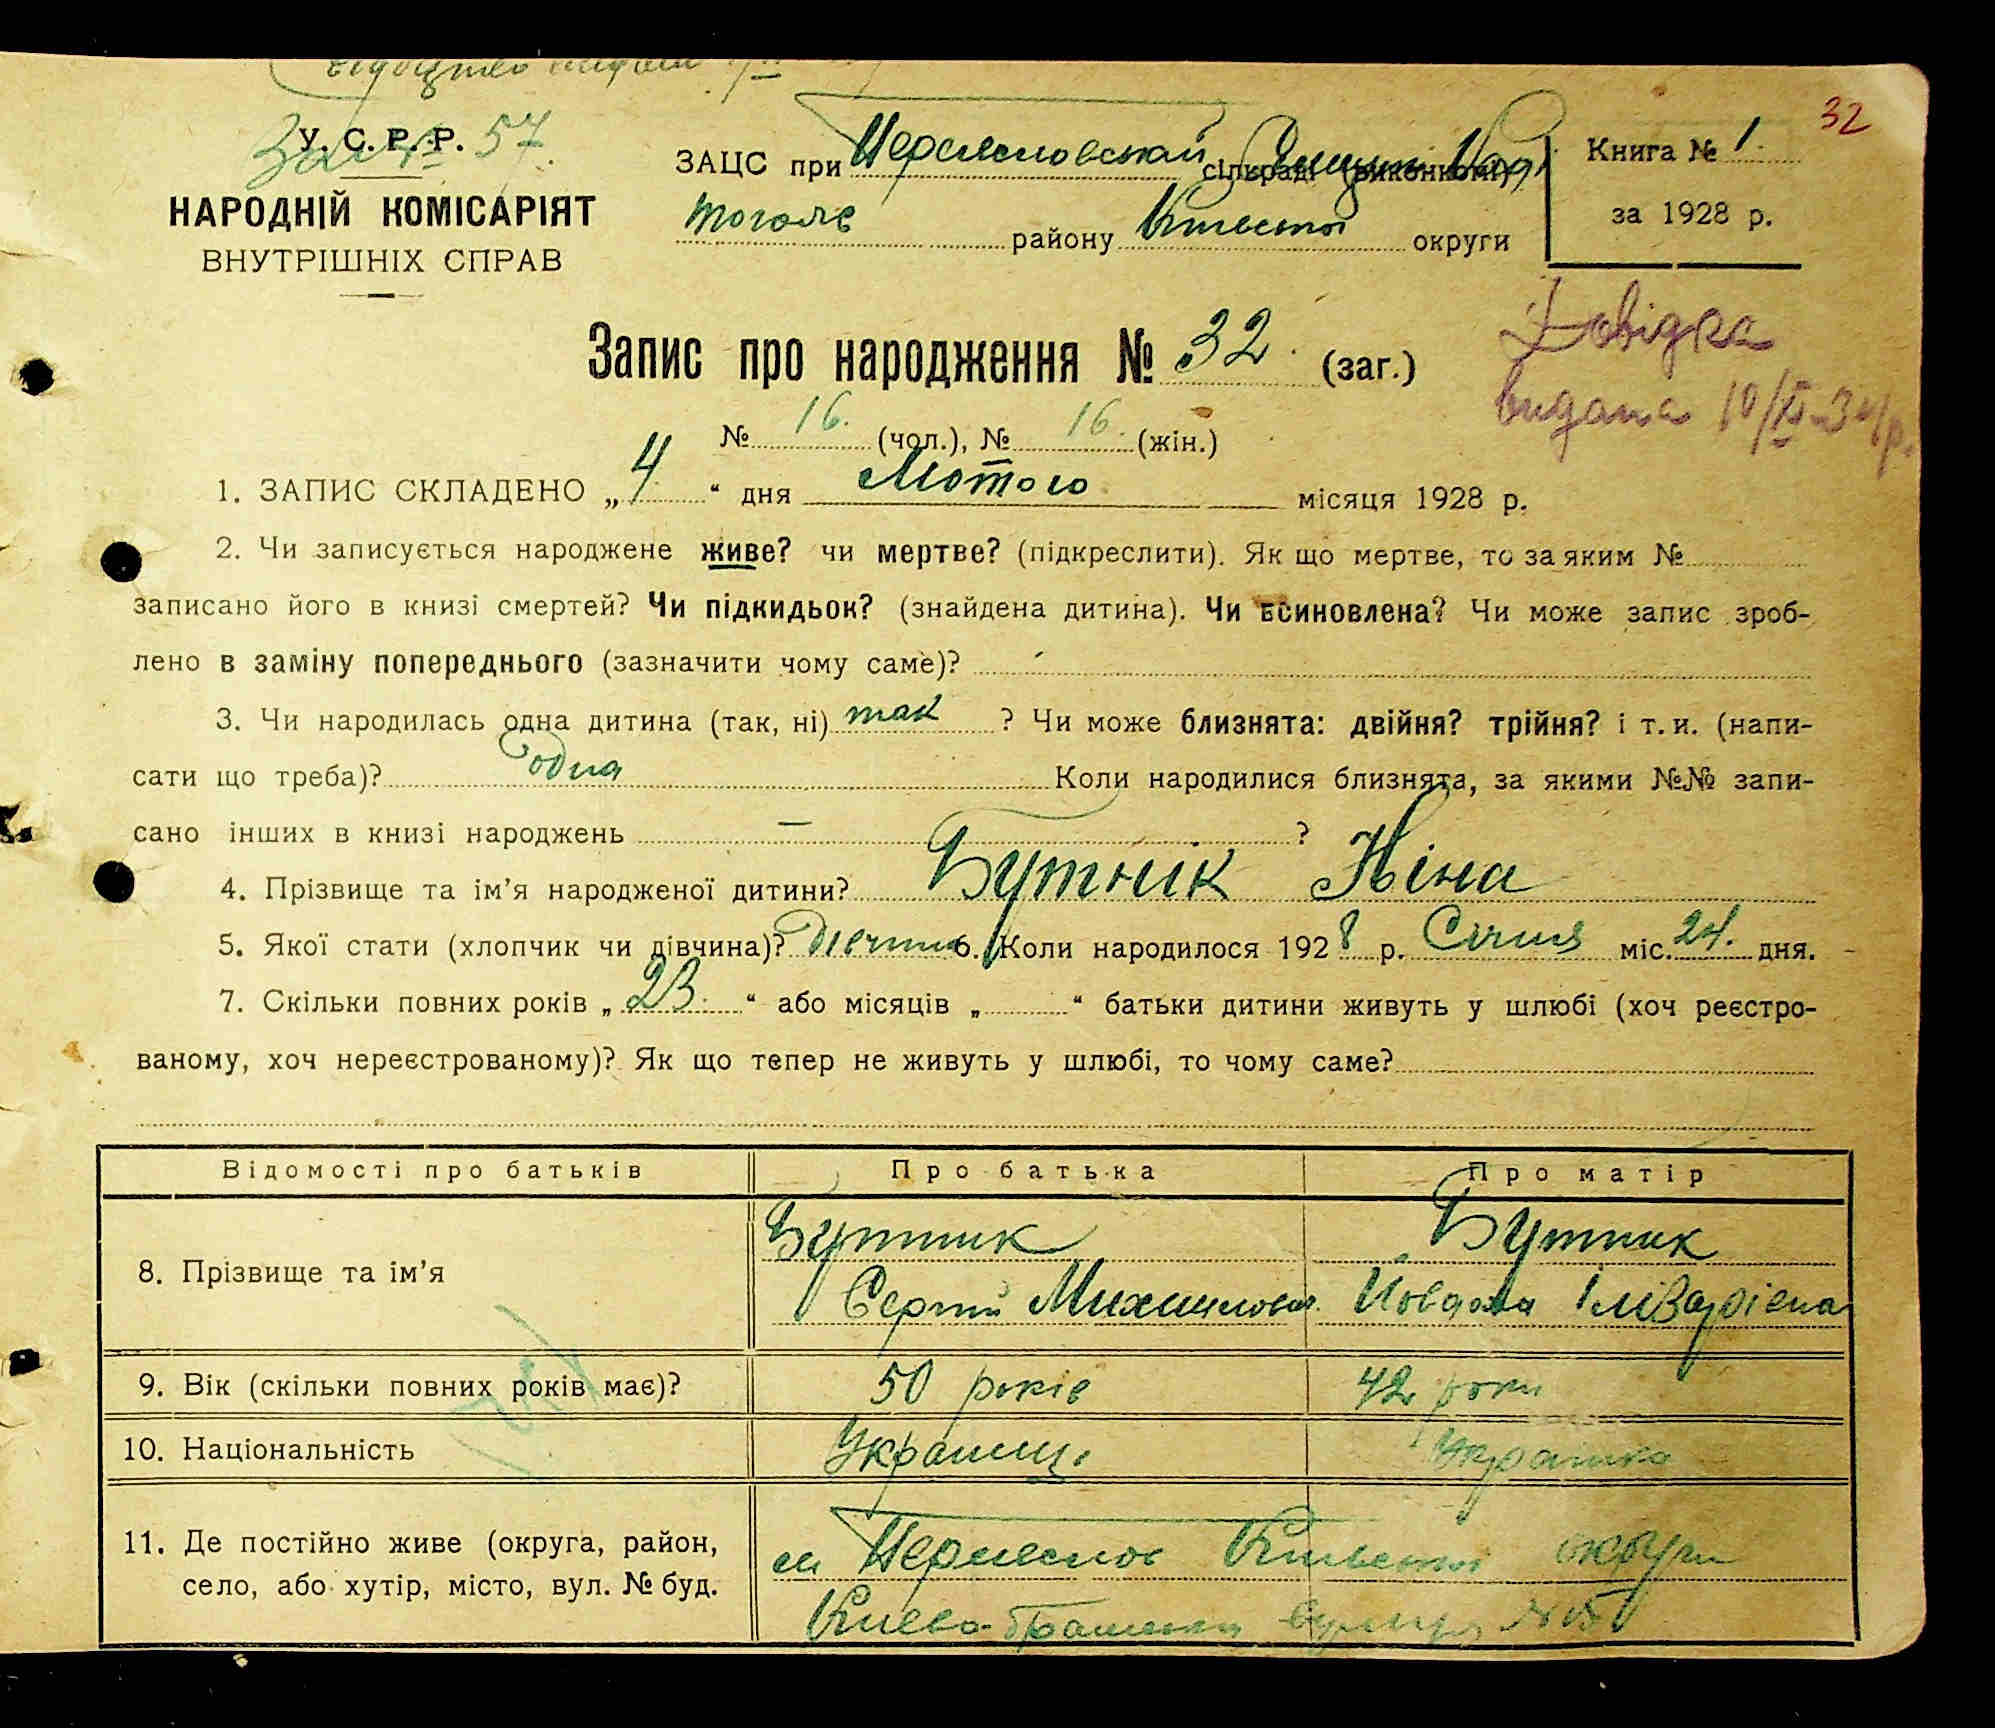 32
У. С. Р. Р.
57
НАРОДНІЙ КОМІСАРІЯТ
ВНУТРІШНІХ СПРАВ
ЗАЦС при Переяславській сільраді (виконкомі)
району Київської округи
Книга № 1
за 1928 р.
Довідка
видана
Запис про народження № 32 (заг.)
№ 16. (чол.), № 16. (жін.)
1. ЗАПИС СКЛАДЕНО „ 4 “ дня Лютого місяця 1928 р.
2. Чи записується народжене живе? чи мертве? (підкреслити). Як що мертве, то за яким №
записано його в книзі смертей? Чи підкидьок? (знайдена дитина). Чи всиновлена? Чи може запис зроб-
лено в заміну попереднього (зазначити чому саме)?
3. Чи народилась одна дитина (так, ні) так ? Чи може близнята: двійня? трійня? і т. и. (напи-
сати що треба)? одна Коли народилися близнята, за якими №№ запи-
сано інших в книзі народжень — ?
4. Прізвище та ім’я народженої дитини? Бутнік Ніна
5. Якої стати (хлопчик чи дівчина)? дівчина 6. Коли народилося 1928 р. Січня міс. 24. дня.
7. Скільки повних років „ 23 “ або місяців „ “ батьки дитини живуть у шлюбі (хоч реєстро-
ваному, хоч нереєстрованому)? Як що тепер не живуть у шлюбі, то чому саме?
Відомості про батьків Про батька Про матір
8. Прізвище та ім’я
Бутник Бутник
Сергій Михайлович
9. Вік (скільки повних років має)? 50 років 42 роки
10. Національність Українц. Українка
11. Де постійно живе (округа, район,
село, або хутір, місто, вул. № буд.
м Переяслов Київської округи
вулиця